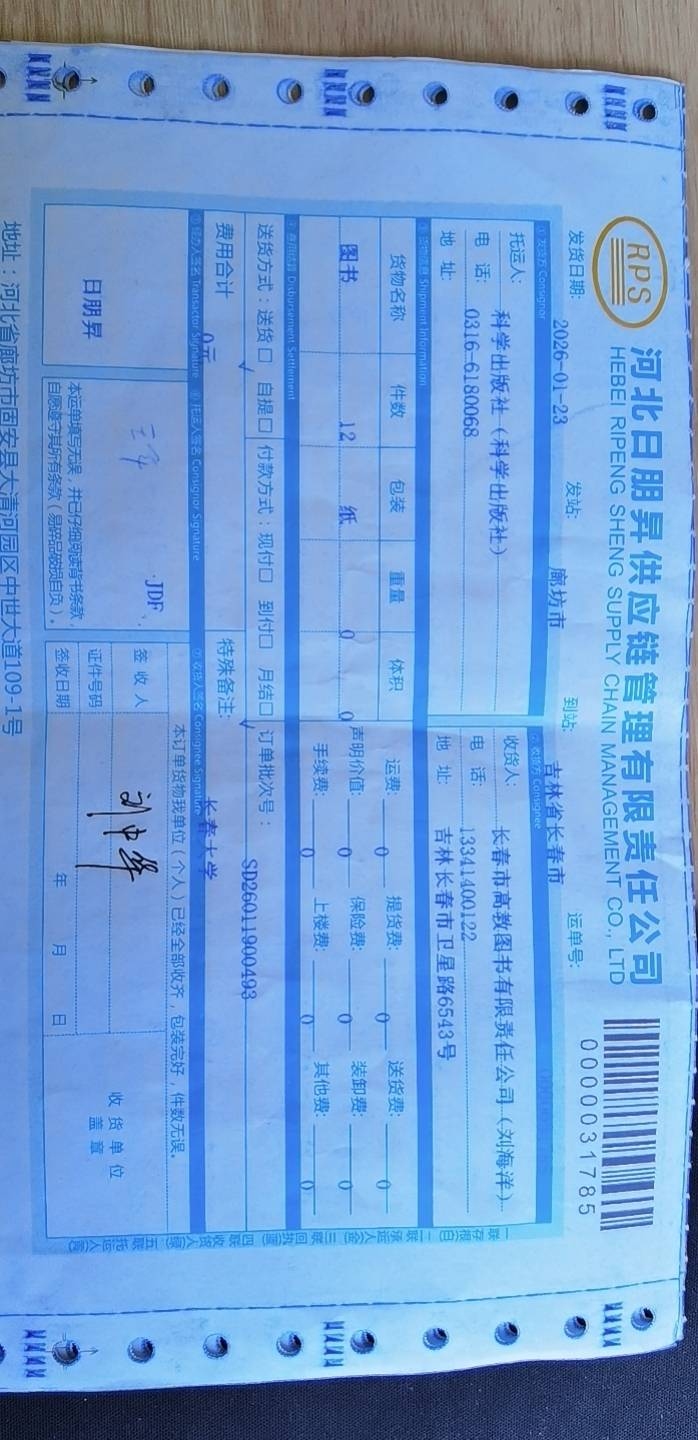 RPS
河北日朋昇供应链管理有限责任公司
HEBEI RIPENG SHENG SUPPLY CHAIN MANAGEMENT CO., LTD
0000031785
发货日期: 2026-01-23 发站: 廊坊市 到站: 吉林省长春市 运单号:
①发货方 Consignor ②收货方 Consignee
托运人: 科学出版社（科学出版社） 收货人: 长春市高教图书有限责任公司（刘海洋）
电 话: 0316-6180068 电 话: 13341400122
地 址: 地 址: 吉林长春市卫星路6543号
③货物信息 Shipment Information
货物名称 件数 包装 重量 体积 运费: 0 提货费: 0 送货费: 0
图书 12 纸 0 0 声明价值: 0 保险费: 0 装卸费: 0
手续费: 0 上楼费: 0 其他费: 0
Disbursement Settlement
送货方式：送货□ 自提□ 付款方式：现付□ 到付□ 月结□ 订单批次号： SD26011900493
√ √
费用合计 0元 特殊备注: 长春大学
⑤经办人签名 Transactor Signature ⑥托运人签名 Consignor Signature ⑦收货人签名 Consignee Signature
日朋昇
JDF
本运单填写无误，并已仔细阅读背书条款，
自愿遵守其所有条款（易碎品破损自负）。
本订单货物我单位（个人）已经全部收齐，包装完好，件数无误。
签 收 人
证件号码
签收日期 年 月 日
收 货 单 位
盖 章
一联存根(白) 二联承运人(金) 三联回执(蓝) 四联收货人(绿) 五联托运人(黄)
地址：河北省廊坊市固安县大清河园区中世大道109-1号